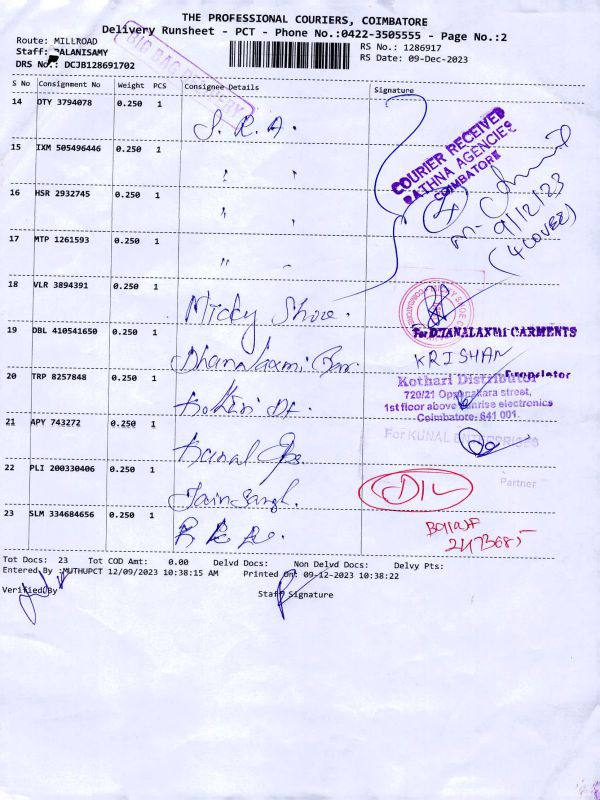 THE PROFESSIONAL COURIERS, COIMBATORE
Delivery Runsheet - PCT - Phone No.:0422-3505555 - Page No.:2
Route: MILLROAD
RS No.: 1286917
Staff: PALANISAMY
RS Date: 09-Dec-2023
DRS No.: DCJB128691702
BIG BAG DELIVERY
S No Consignment No Weight PCS Consignee Details Signature
14 DTY 3794078 0.250 1 S. R. A.
COURIER RECEIVED
RATHNA AGENCIES
COIMBATORE
15 IXM 505496446 0.250 1 " "
4
9/12/23
16 HSR 2932745 0.250 1 " "
(4 COVER)
17 MTP 1261593 0.250 1 "
18 VLR 3894391 0.250 1 Micky Shoe.
19 DBL 410541650 0.250 1 Dhanalaxmi
For DHANALAXMI GARMENTS
KRISHAN
Proprietor
20 TRP 8257848 0.250 1 Kothari
Kothari Distributor
720/21 Oppanakara street,
1st floor above Sunrise electronics
Coimbatore- 641 001.
21 APY 743272 0.250 1 Kunal
For KUNAL ENTERPRISES
22 PLI 200330406 0.250 1 Jain Sangh.
D/L
Partner
23 SLM 334684656 0.250 1
Tot Docs: 23 Tot COD Amt: 0.00 Delvd Docs: Non Delvd Docs: Delvy Pts:
Entered By :MUTHUPCT 12/09/2023 10:38:15 AM Printed On: 09-12-2023 10:38:22
Verified By
Staff Signature